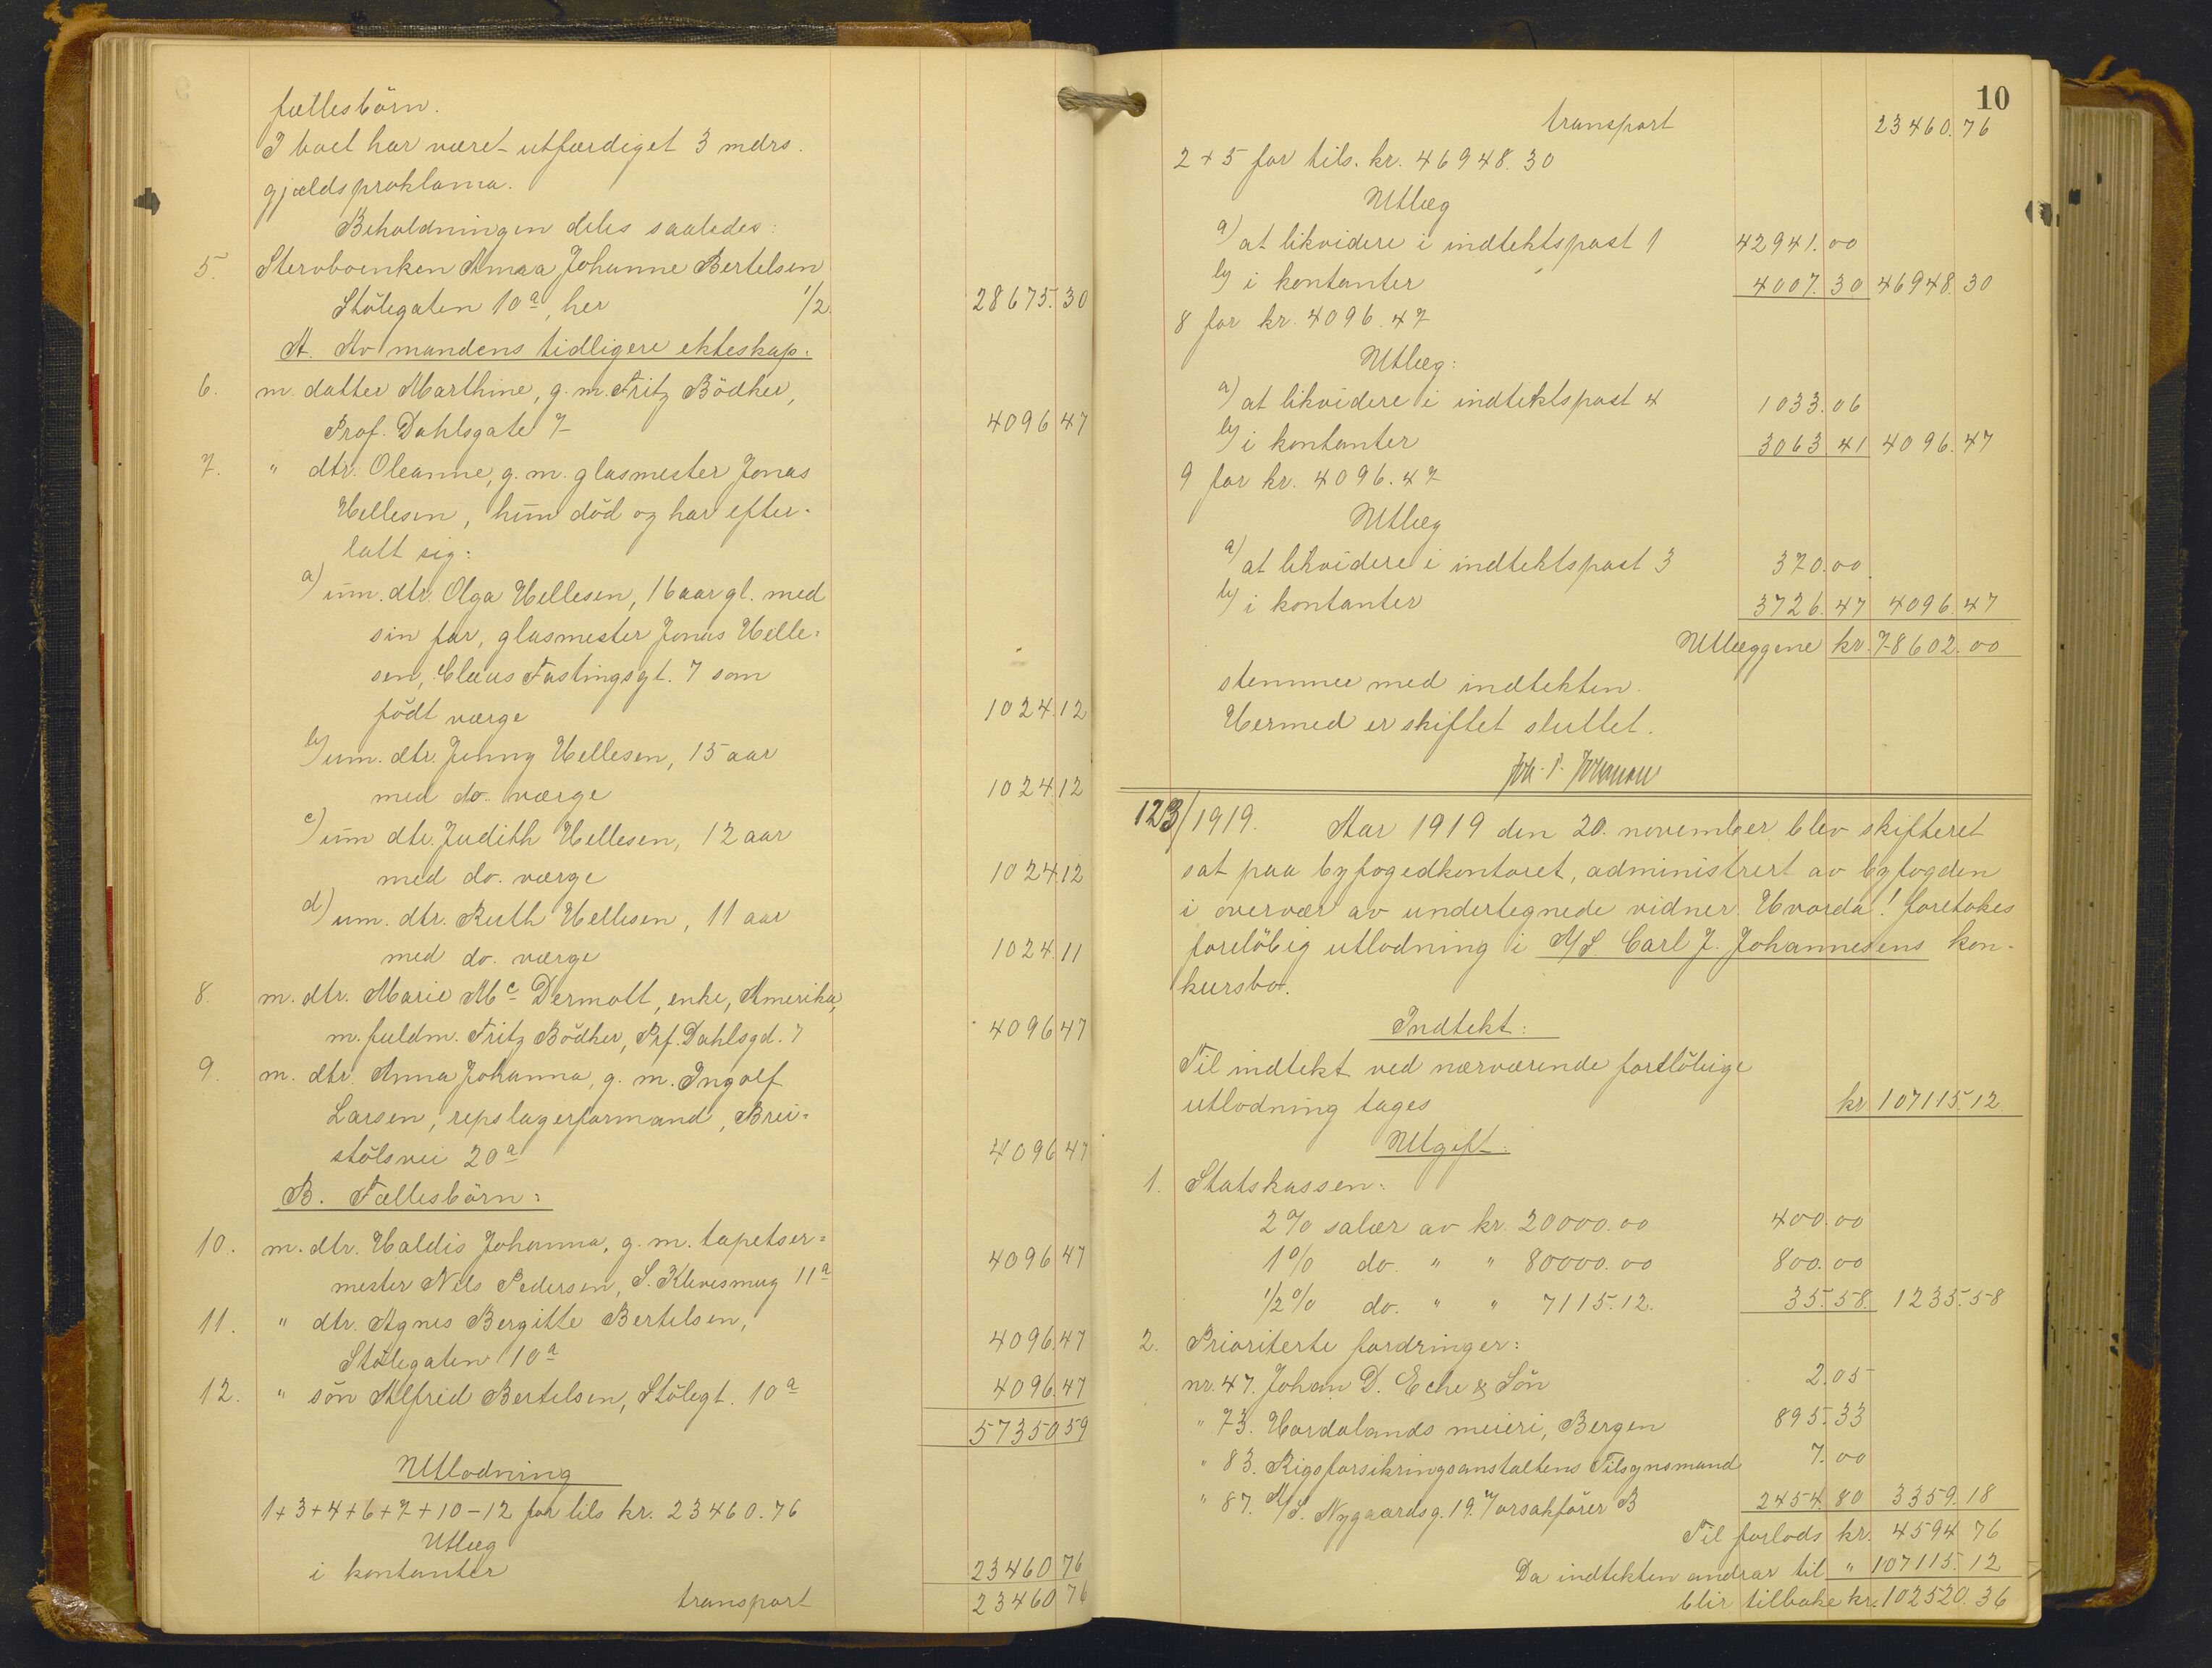 fællesbörn.
I boet har været utfærdiget 3 mdrs.
gjældsproklama.
Beholdningen deles saaledes:
5. Stervboenken Anna Johanne Bertelsen
Stölegaten 10a, her 1/2. 28675.30
A. Av mandens tidligere ekteskap:
6. m. datter Marthine, g. m. Fritz Bödker,
Prof. Dahlsgate 7 4096 47
7. " dtr. Oleanne, g. m. glasmester Jonas
Hellesen, hun död og har efter-
latt sig:
a) um. dtr. Olga Hellesen, 16 aar gl. med
sin far, glasmester Jonas Helle-
sen, Claus Fastingsgt. 7 som
födt værge 1024.12
b) um. dtr. Jenny Hellesen, 15 aar
med do. værge 1024.12
c) um dtr. Judith Hellesen, 12 aar
med do. værge 1024.12
d) um. dtr. Ruth Hellesen, 11 aar
med do. værge 1024.11
8. m. dtr. Marie Mc Dermott, enke, Amerika,
m. fuldm. Fritz Bödker, Prf. Dahlsgd. 7 4096 47
9. m. dtr. Anna Johanna, g. m. Ingolf
Larsen, repslagerformand, Brei-
stölsvei 20a 4096 47
B. Fællesbörn:
10. m. dtr. Haldis Johanna, g. m. tapetser-
mester Nils Pedersen, S. Klevesmug 11a 4096 47
11. " dtr. Agnes Bergitte Bertelsen,
Stölegaten 10a 4096.47
12. " sön Alfred Bertelsen, Stölegt. 10a 4096.47
57350 59
Utlodning
1+3+4+6+7+10-12 for tils kr. 23460.76
Utlæg
i kontanter 23460 76
transport 23460 76
10
transport 23460.76
2+5 for tils. kr. 46948.30
Utlæg
a) at likvidere i indtektspost 1 42941.00
b) i kontanter 4007.30 46948.30
8 for kr. 4096.47
Utlæg:
a) at likvidere i indtektspost 4 1033.06
b) i kontanter 3063 41 4096.47
9 for kr. 4096.47
Utlæg
a) at likvidere i indtektspost 3 370.00
b) i kontanter 3726.47 4096.47
Utlæggene kr. 78602.00
stemmer med indtekten.
Hermed er skiftet sluttet.
123/1919. Aar 1919 den 20. november blev skifteret
sat paa byfogedkontoret, administrert av byfogden
i overvær av undertegnede vidner. Hvorda! foretokes
forelöbig utlodning i A/S. Carl J. Johannesens kon-
kursbo.
Indtekt:
Til indtekt ved nærværende forelöbige
utlodning tages kr 107115.12
Utgift:
1. Statskassen:
2% salær av kr. 20000.00 400.00
1% do. " " 80000.00 800.00
1/2% do. " " 7115.12. 35.58. 1235.58
2. Prioriterte fordringer:
nr. 47. Johan D. Eche & Sön 2.05
" 73. Hordalands meieri, Bergen 895.33
" 83. Rigsforsikringsanstaltens Tilsynsmand 7.00
" 87. A/S. Nygaardsg. 19. v/ orsakförer B 2454.80 3359.18
Til forlods kr. 4594 76
Da indtekten andrar til " 107115.12
blir tilbake kr. 102520.36